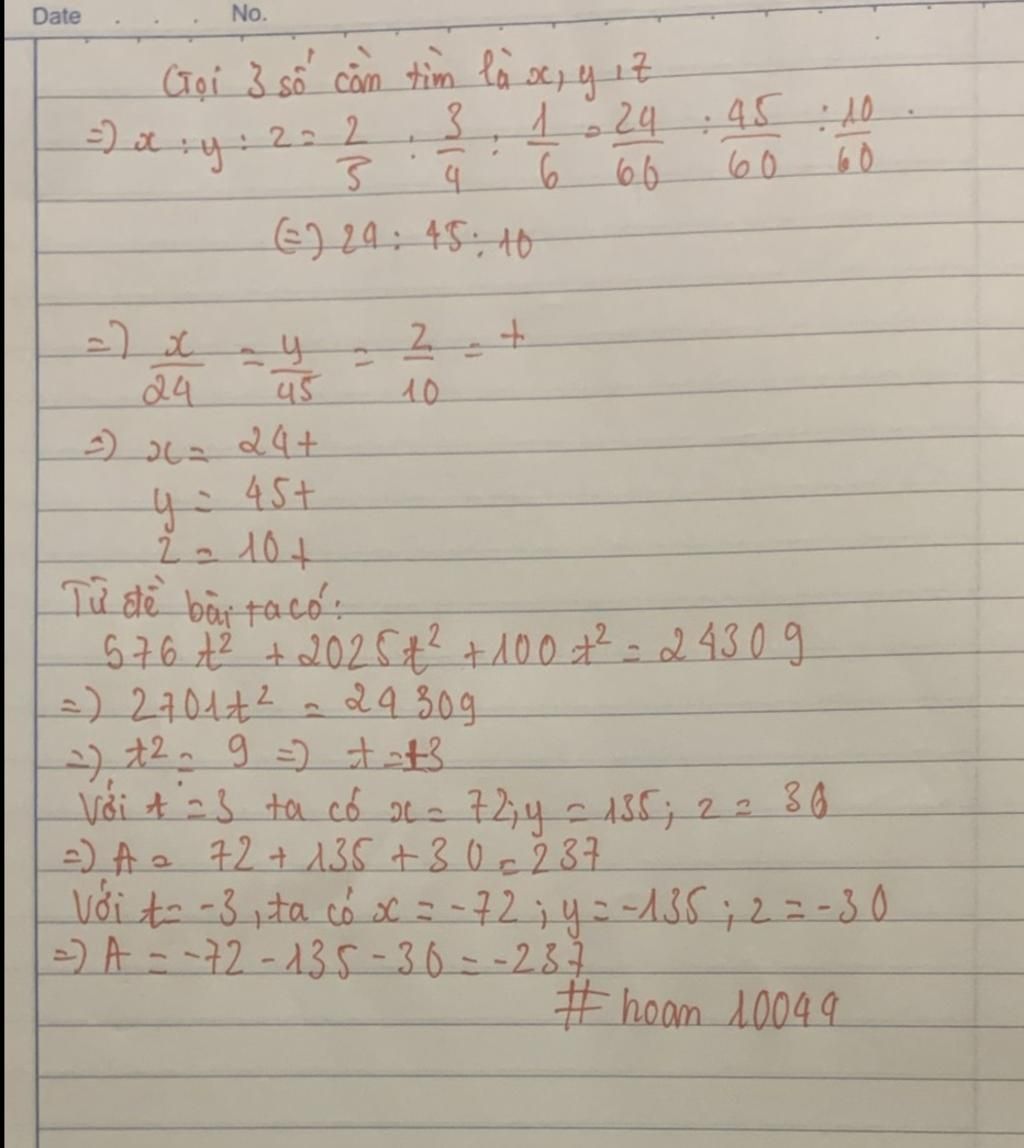 Date . . . No.
Gọi 3 số cần tìm là x, y, z
=) x : y : z = 2/5 : 3/4 : 1/6 = 24/60 : 45/60 : 10/60 .
(=) 24 : 45 : 10
=) x/24 = y/45 = z/10 = t
=) x = 24t
y = 45t
z = 10t
Từ đề bài ta có:
576 t² + 2025t² + 100 t² = 24309
=) 2701t² = 24309
=) t² = 9 =) t = ±3
Với t = 3 ta có x = 72; y = 135; z = 30
=) A = 72 + 135 + 30 = 237
Với t = -3, ta có x = -72 ; y = -135 ; z = -30
=) A = -72 - 135 - 30 = -237
# hoam 10049